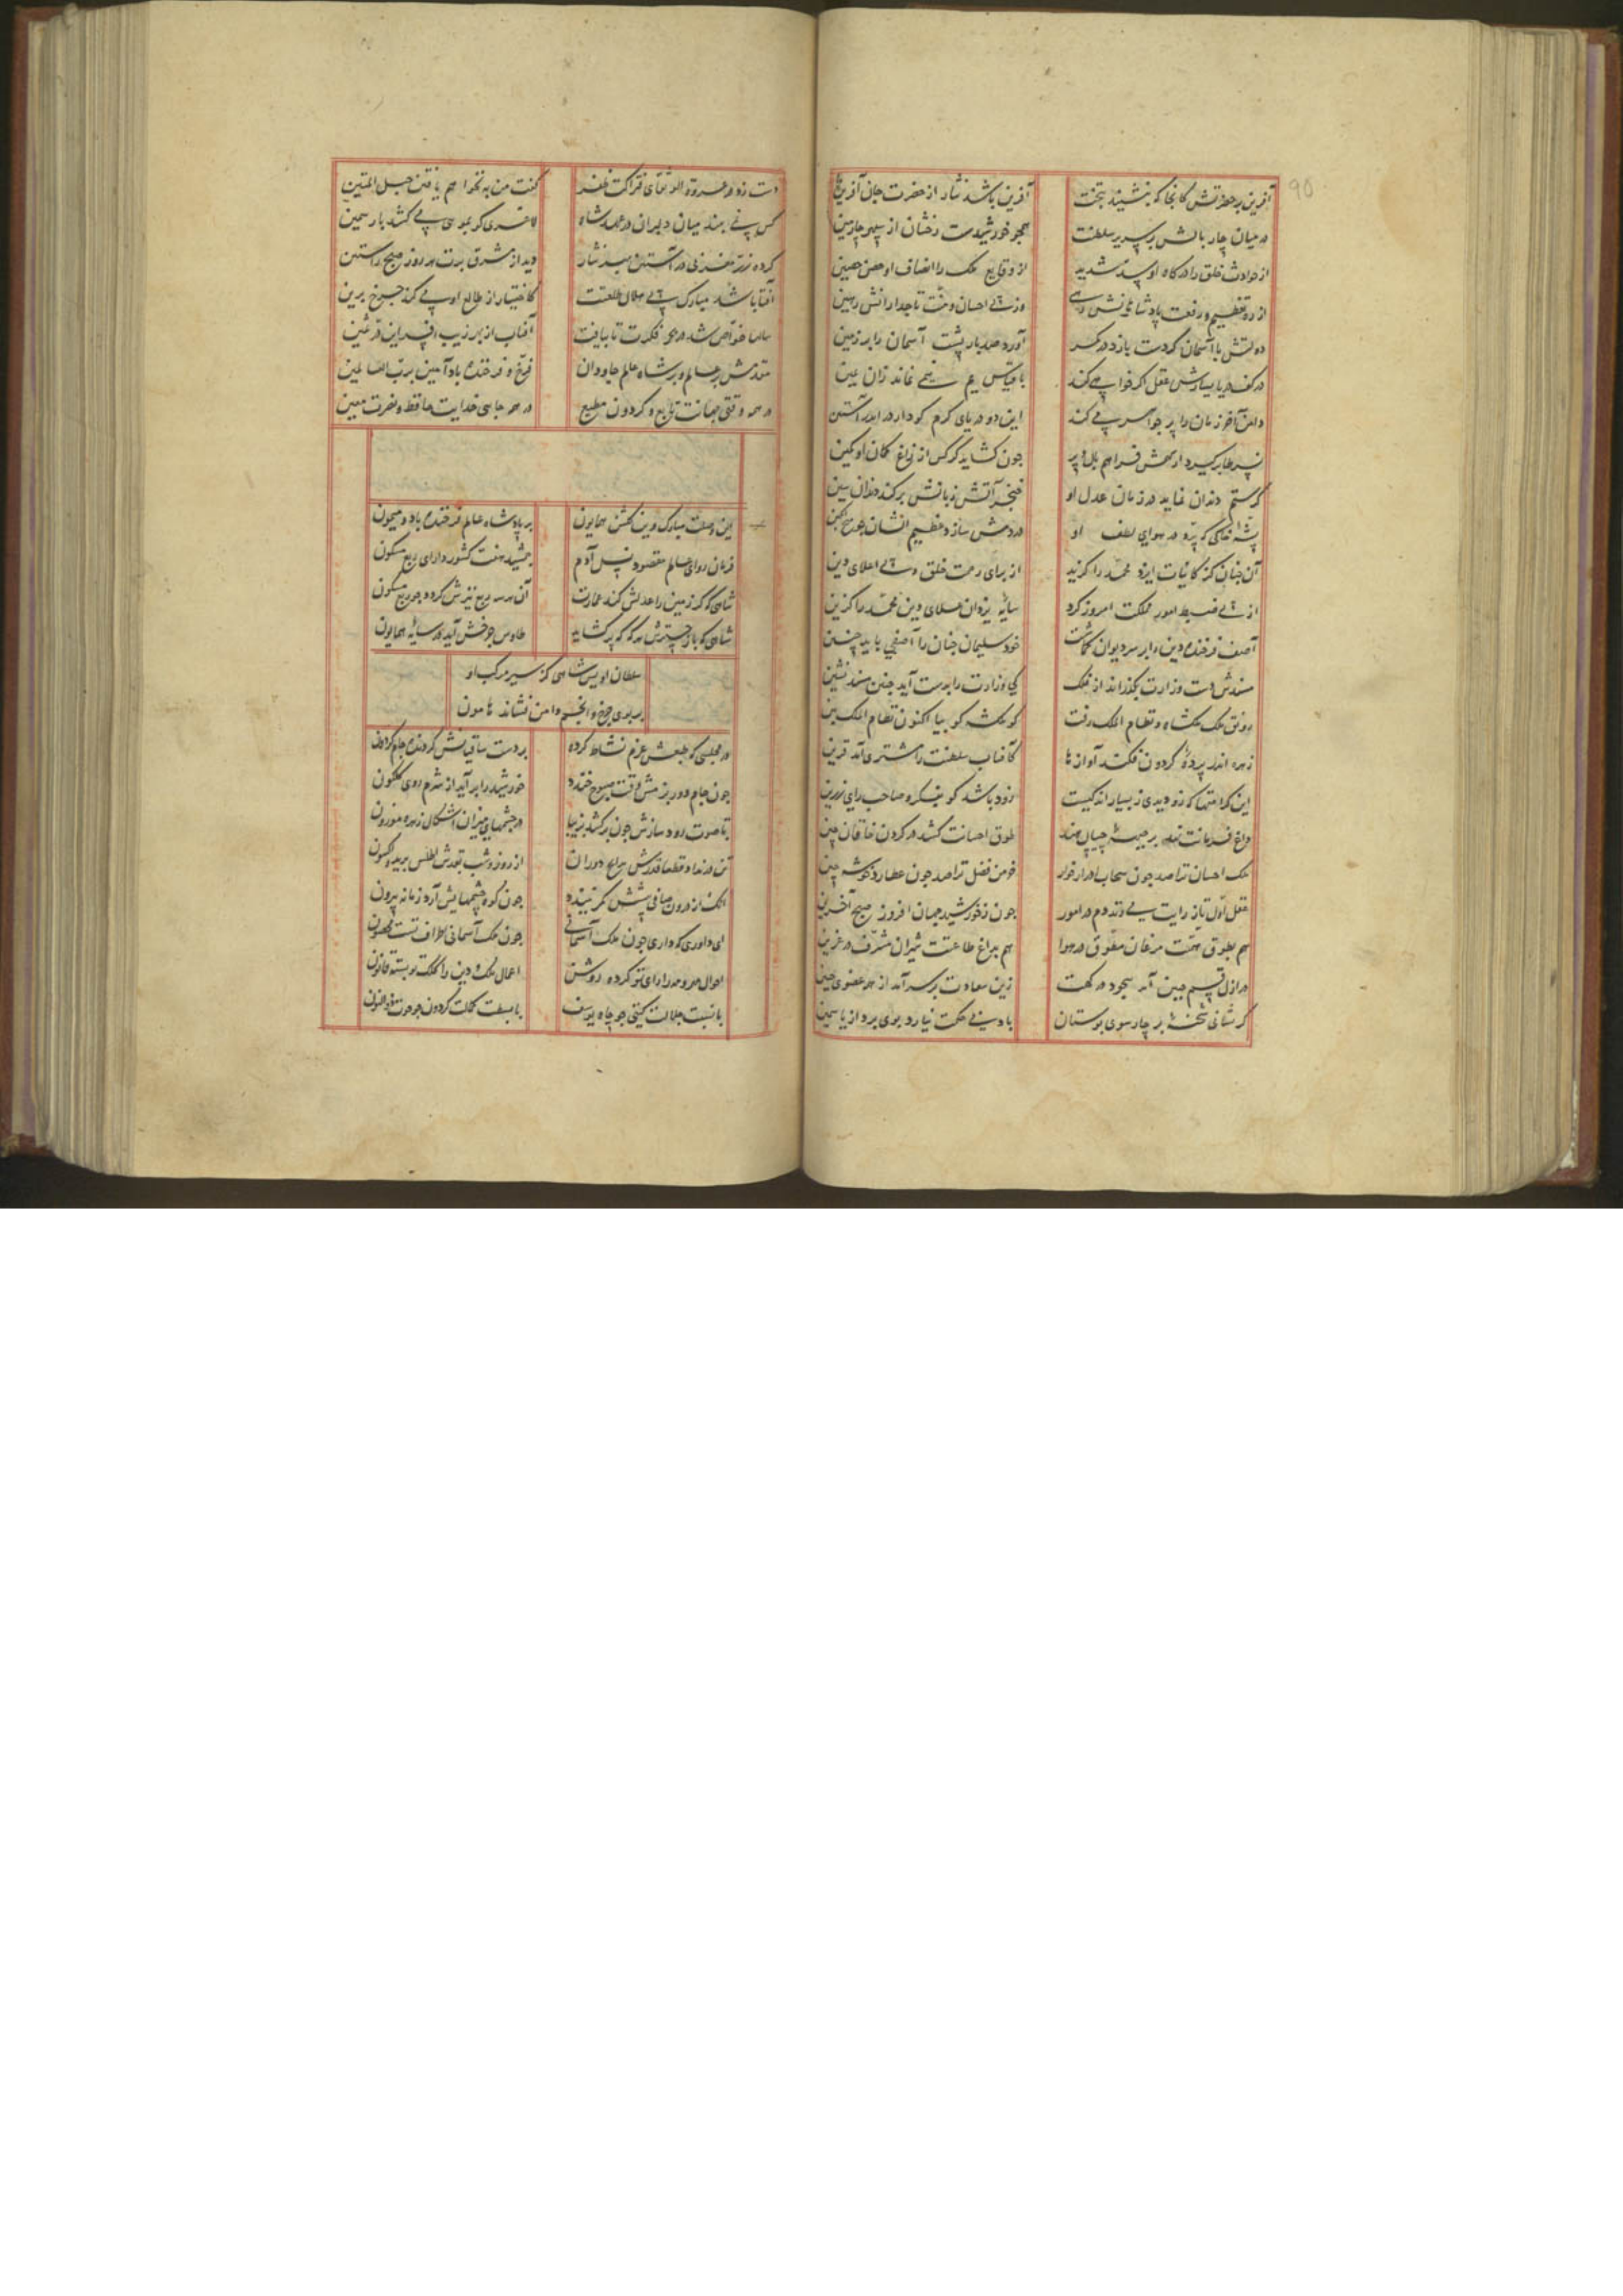 95
آفرین بر حضرتش کانجا که بنشیند بتخت آفرین باشد نثار از حضرت جان آفرین
در میان چار بالش بر سریر سلطنت همجو خورشیدست رخشان از سپهر چارمین
از حوادث خلق را درکاه او سد شدید از وقایع ملک را انصاف او حصن حصین
از ره تعظیم و رفعت پادشاهانش رهی وز پی احسان و منت تاجدارانش رهین
دولتش با آسمان کر دست یازد در کمر آورد صد بار پشت آسمان را بر زمین
در کف دریا یسارش عقل اکر خوابی کند با
دامن آخر زمان را پر جواهر می کند این دو دریای کرم کو دارد اندر آستین
جون کشاید کرکس از زاغ کمان او کمین
کر ستم دندان نماید در زمان عدل او خنجر آتش زبانش بر کند دندان بین
پشه کر پرد در هوای لطف او در دمش سازد عظیم الشان
آن جنان کز کاینات ایزد محمد را کزید از برای رحمت خلق و پی اعلای دین
از پی ضبط امور مملکت امروز کرد سایه یزدان علای دین محمد را کزین
آصف فرخنده دین را بر سر دیوان کماشت خود سلیمان جنان را آصفی باید چنین
مسندش دست وزارت بکذراند از فلک کی وزارت را بدست آید جنین مسند نشین
رونق ملک ملکشاه و نظام الملک رفت کو ملکشه کو بیا اکنون نظام الملک بین
زهره اندر پرده کردون فکند آوازها کافتاب سلطنت را مشتری آمد قرین
این کرامتها که زو دیدی ز بسیار اندکیست زود باشد کو بفکر و صاحب رای رزین
داغ فرمانت نهد بر جبهه جیپال هند طوق احسانت کشد در کردن خاقان چین
ملک احسان ترا صد جون سحاب ادرار خوار خرمن فضل ترا صد جون عطارد خوشه چین
عقل اول تاز رایت می دم در امور جون ز خورشید جهان افروز صبح آخرین
هم بطوق همتت مرغان مطوق در هوا هم بداغ طاعتت شیران مشرف در عرین
در ازل قسم جبین آمد سجود درکهت زین سعادت بر سر آمد از همه عضوی جبین
کر نشانی شحنه بر چارسوی بوستان باد بی حکمت نیارد بوی برد از یاسمین
دست زد در عروة الوثقای فتراکت ظفر کفت من به نحوا هم یافتن حبل المتین
کس نمی بیند میان دلبران در عهد شاه کافری کو بموی می کشد بار سمین
کرده زر مغربی در آستین بهر نثار دید از مشرق برت هر روز صبح راستین
آفتابا شد مبارک پی هلال طلعتت کاختیار از طالع او می کند جرخ برین
سالها غواص شد در بحر فکرت تا بیافت آفتاب از بهر زیب افسر این در ثمین
مقدمش بر عالم و بر شاه عالم جاودان فرخ و فرخنده باد آمین برب العالمین
در همه وقتی جهانت تابع و کردون مطیع در همه جایی خدایت حافظ و نصرت معین
این وصلت مبارک وین کلشن همایون بر پادشاه عالم فرخنده باد و میمون
فرمان روای عالم مقصود نسل آدم جمشید هفت کشور دارای ربع مسکون
شاهی که کر زمین را عدلش کند عمارت آن هر سه ربع نیزش کردد جو ربع مسکون
شاهی که باز چترش هر که که پر کشاید طاوس جرخش آید در سایه همایون
سلطان اویس شاهی کز سیر مرکب او
بر روی جرخ و انجم دامن فشاند هامون
در مجلسی که طبعش عزم نشاط کرده بر دست ساقیانش کردنده جام کردون
جون جام دور بزمش وقت صبوح خندد خورشید را بر آید از شرم روی کلکون
تا صوت رود سازش جون بر کشد زیبا در چشمهای میزان اشکال زهره موزون
تن در نداد قطعا قدرش بداج دوران از روز و شب بقدش اطلس برید و اکسون
جون کوه چشمهایش آرد زمانه بیرون
ای داوری که داری جون ملک آسمانی جون ملک آسمانی اطراف تست
احوال مهر و مه را رای تو کرده روشن اعمال ملک و دین را کلک تو بسته قانون
با نسبت جلالت کیتی جو چاه یوسف با بسطت کمالت کردون جو حوت ذو النون